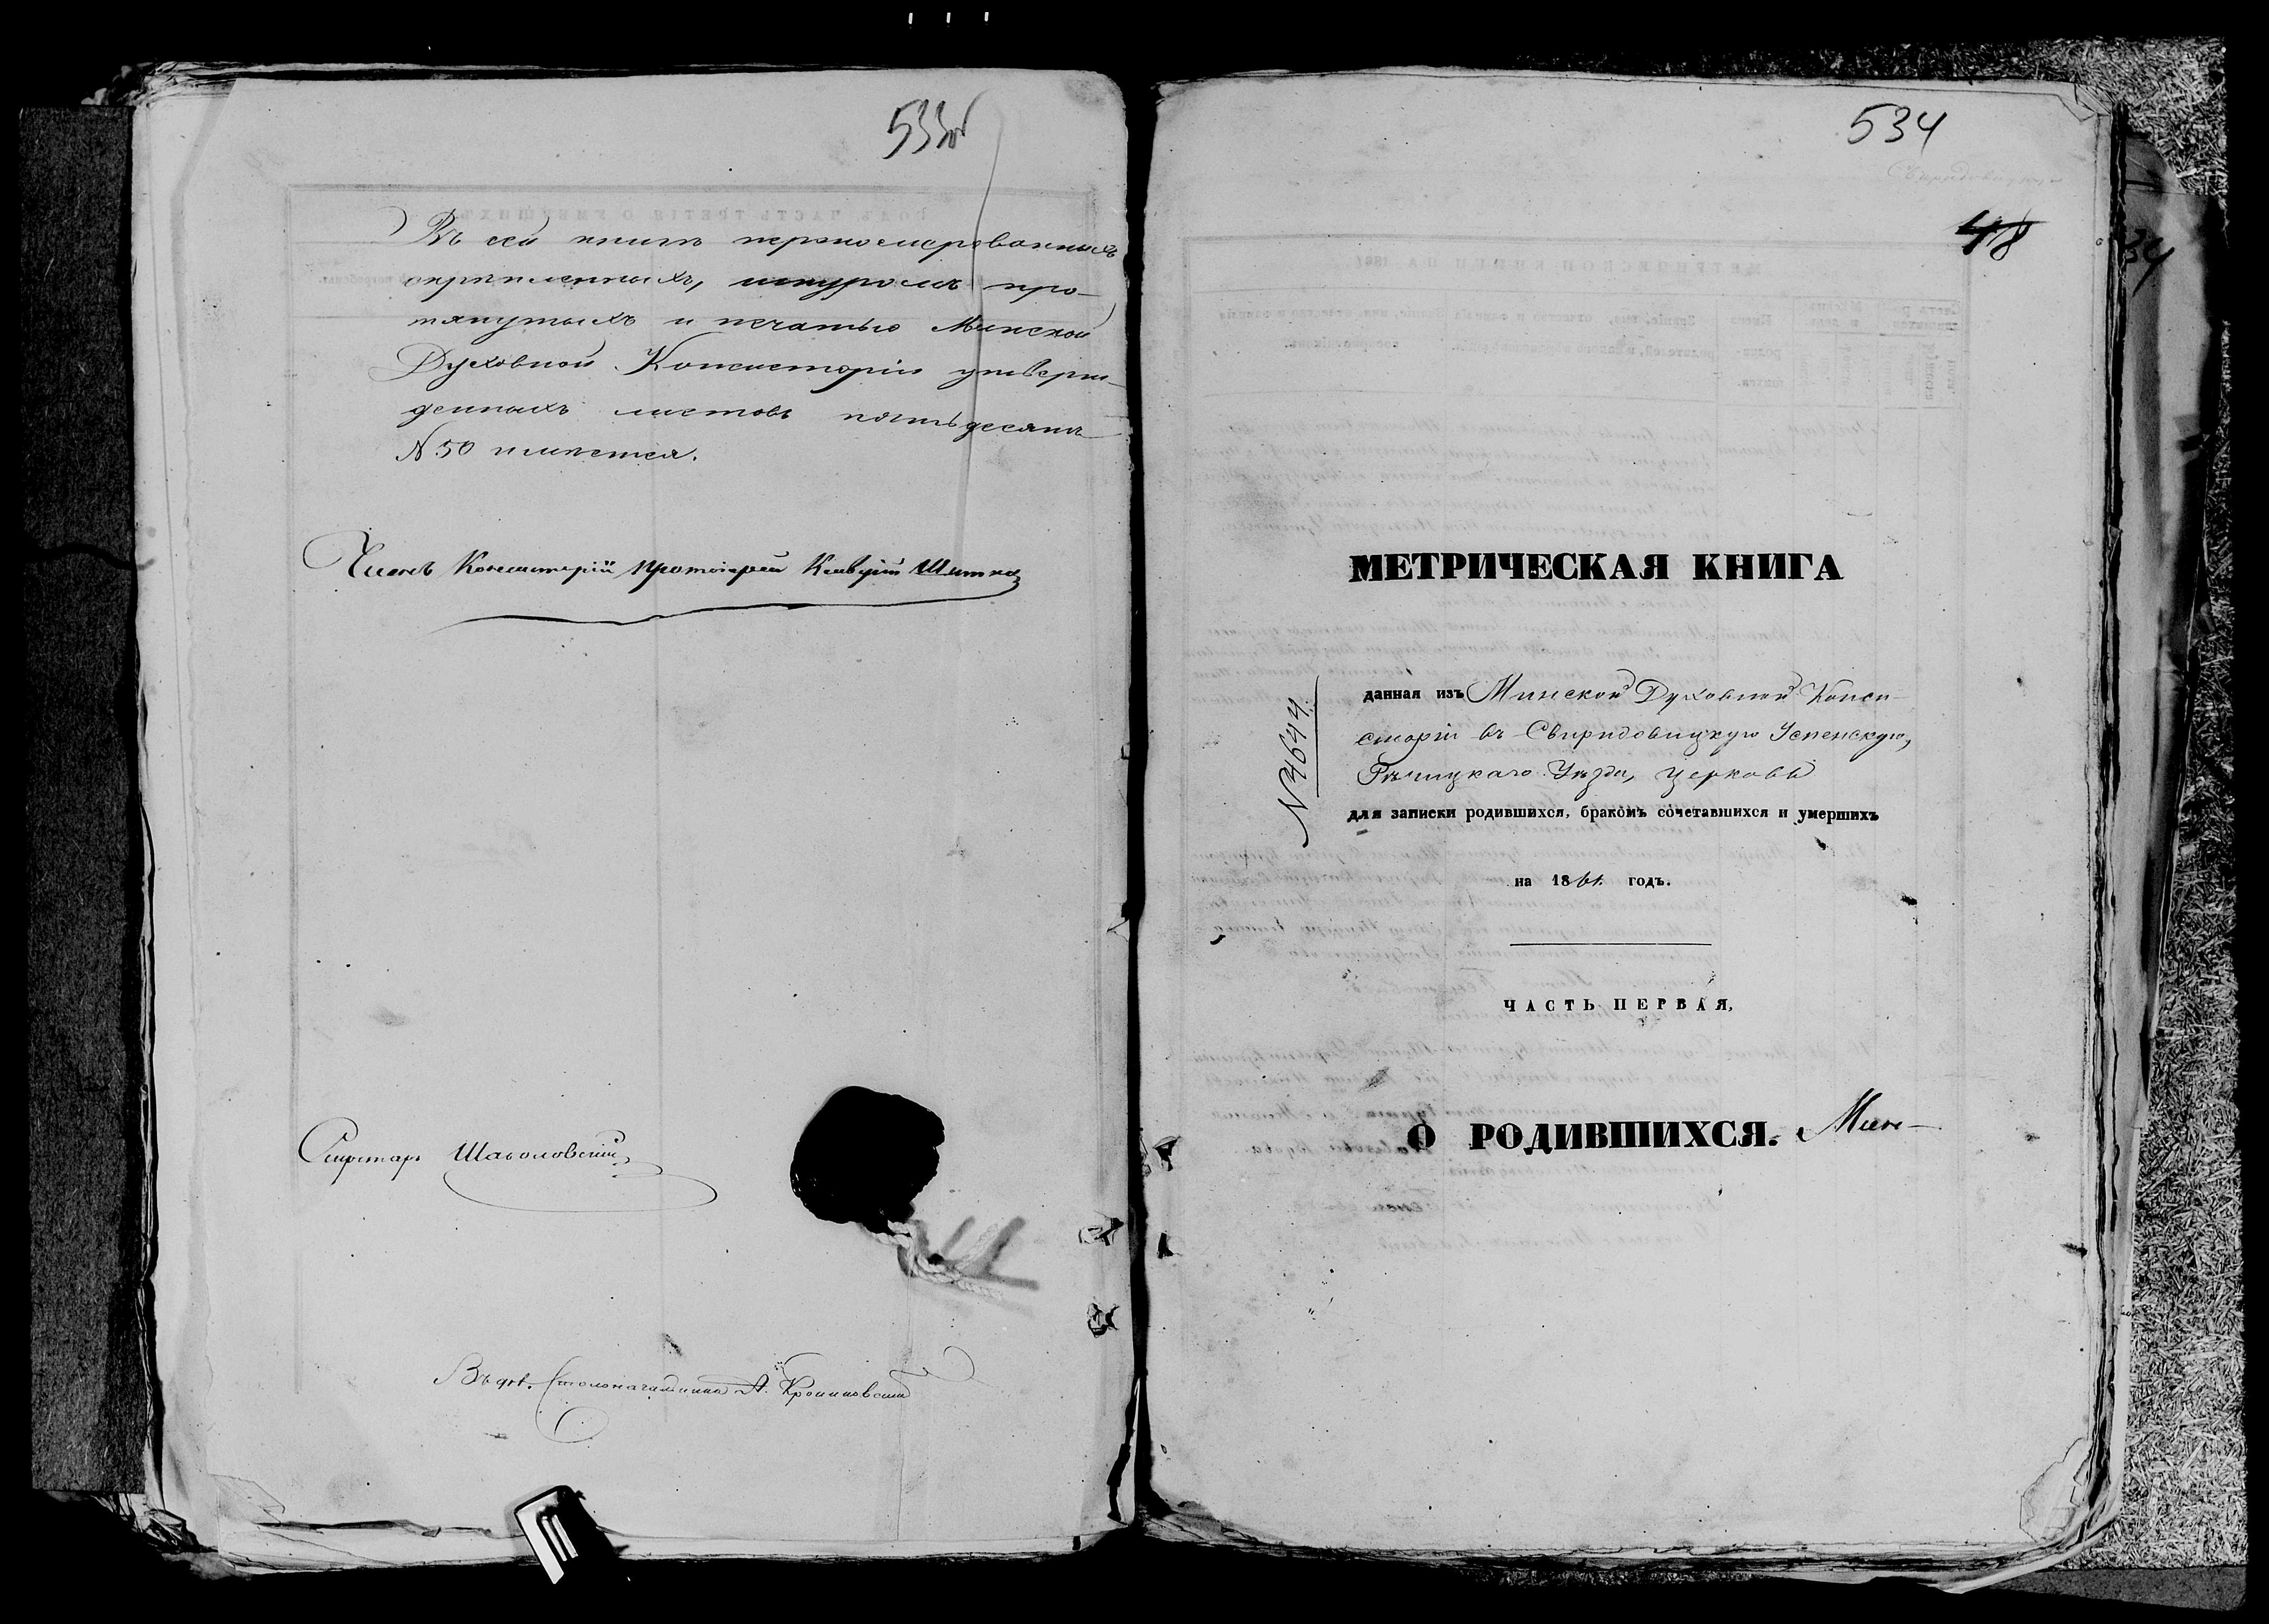 533об
Въ сей книгѣ переномерованныхъ
скрѣпленныхъ, шнуромъ про-
тянутыхъ и печатью Минской
Духовной Консисторіи утверж-
денныхъ листовъ пятьдесятъ
№ 50 имѣется.
Членъ Консисторіи протоіерей
Секретарь
Столоначальника А.
534
48
34
МЕТРИЧЕСКАЯ КНИГА
№ 4644
данная изъ Минской Духовной Конси-
сторіи въ Свиридовицкую Успенскую,
Рѣчицкаго Уѣзда, церковь
для записки родившихся, бракомъ сочетавшихся и умершихъ
на 1861 годъ.
ЧАСТЬ ПЕРВАЯ,
О РОДИВШИХСЯ. Мин-